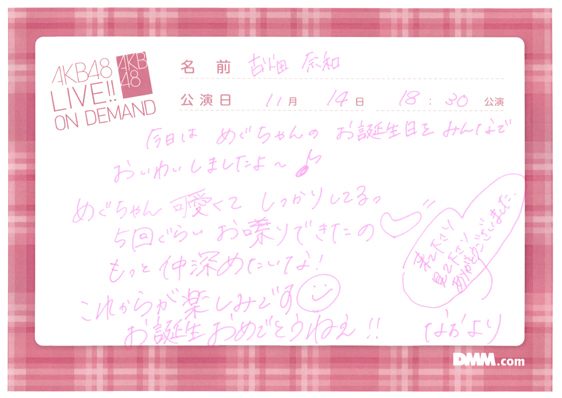 AKB48
LIVE!!
ON DEMAND
AKB
48
名 前 古畑 奈和
公演日 11月 14日 18:30 公演
今日は めぐちゃんの お誕生日を みんなで
おいわいしましたよ〜♪
めぐちゃん 可愛くて しっかりしてるっ
5回ぐらい お喋りできたの
もっと 仲深めたいな!
これからが楽しみです
お誕生おめでとうねぇ!! なおより
来て下さり
見て下さり
ありがとうございました.
DMM.com